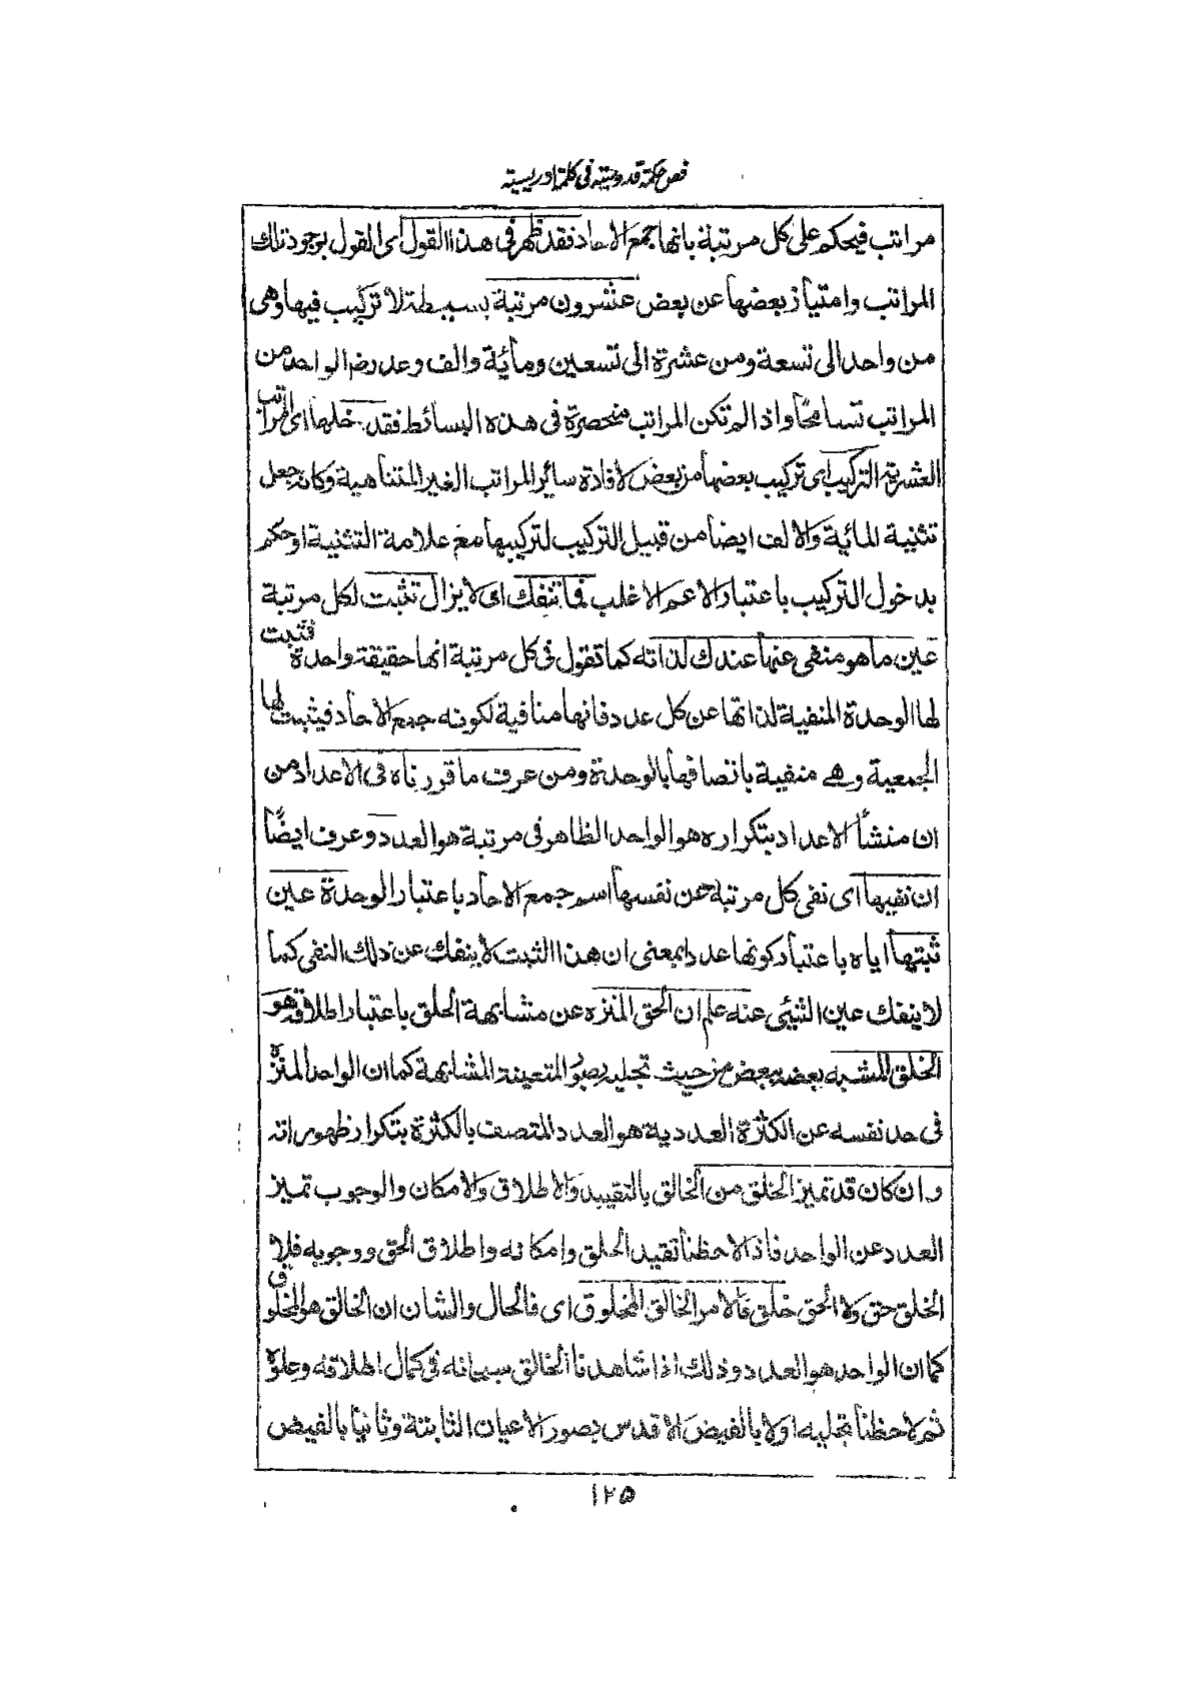 فص حكمة قدوسية في كلمة ادريسية
مراتب فيحكم على كل مرتبة بانها جمع الاحاد فقد ظهر فى هذا القول اى القول بوجود تلك
المراتب وامتياز بعضها عن بعض عشرون مرتبة بسيطة لا تركيب فيها وهى
من واحد الى تسعة ومن عشرة الى تسعين ومأية والف وعد رض الواحد من
المراتب تسامحا واذا لم تكن المراتب منحصرة فى هذه البسائط فقد دخلها اى المراتب
العشرين التركيب اى تركيب بعضها من بعض لافادة سائر المراتب الغير المتناهية وكانه جعل
تثنية المائية والالف ايضا من قبيل التركيب لتركيبها مع علامة التثنية او حكم
بدخول التركيب باعتبار الاعم الاغلب فما تنفك اى لا يزال تثبت لكل مرتبة
عين ما هو منفى عنها عندك لذاته كما تقول فى كل مرتبة انها حقيقة واحدة فتثبت
لها الوحدة المنفية لذاتها عن كل عدد فانها منافية لكونه جمع الاحاد فيثبت لها
الجمعية وهى منفية باتصافها بالوحدة ومن عرف ما قررناه فى الاعداد من
ان منشأ الاعداد بتكراره هو الواحد الظاهر فى مرتبة هو العدد وعرف ايضًا
ان نفيها اى نفى كل مرتبة عن نفسها اسم جمع الاحاد باعتبار الوحدة عين
ثبتها اياه باعتبار كونها عددا بمعنى ان هذا الثبت لا ينفك عن ذلك النفى كما
لا ينفك عين الشئى عنه علم ان الحق المنزه عن مشابهة الخلق باعتبار اطلاقه هو
الخلق المشبه بعضه ببعض من حيث تجليه بصور المتعينة المشابهة كما ان الواحد المنزه
فى حد نفسه عن الكثرة العددية هو العدد المتصف بالكثرة بتكرار ظهوراته
وان كان قد تميز الخلق من الخالق بالتقييد والاطلاق والامكان والوجوب تميز
العدد عن الواحد فاذا لاحظنا تقيد الخلق وامكانه واطلاق الحق ووجوبه فلا
الخلق حق ولا الحق خلق فالامر الخالق المخلوق اى فالحال والشان ان الخالق هو المخلوق
كما ان الواحد هو العدد وذلك اذا شاهدنا الخالق سبحانه فى كمال اطلاقه وعلوه
ثم لاحظنا تجليه اولا بالفيض الاقدس بصور الاعيان الثابتة وثانيا بالفيض
١٢٥